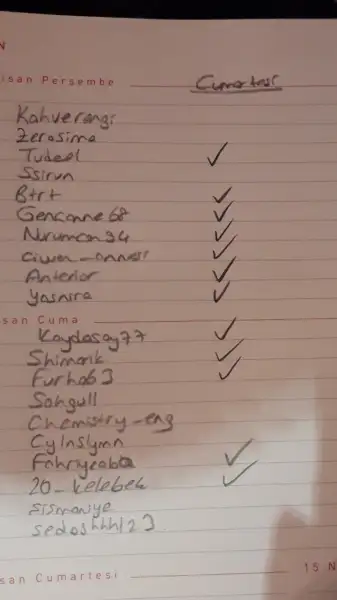 N
isan Persembe
Cumartesi
Kahverengi
Zerosima
Tudeel ✓
Ssirun
Btrt ✓
Gencanne68 ✓
Nurumcan34 ✓
✓
Anterior ✓
Yasnsra ✓
san Cuma
Kaydasoy77 ✓
Shimarik ✓
Furhob3 ✓
Sohgull
Chemistry-eng
Cylnslymn
✓
20-kelebek ✓
Sismanye
sedoshhh123
san Cumartesi
15 N